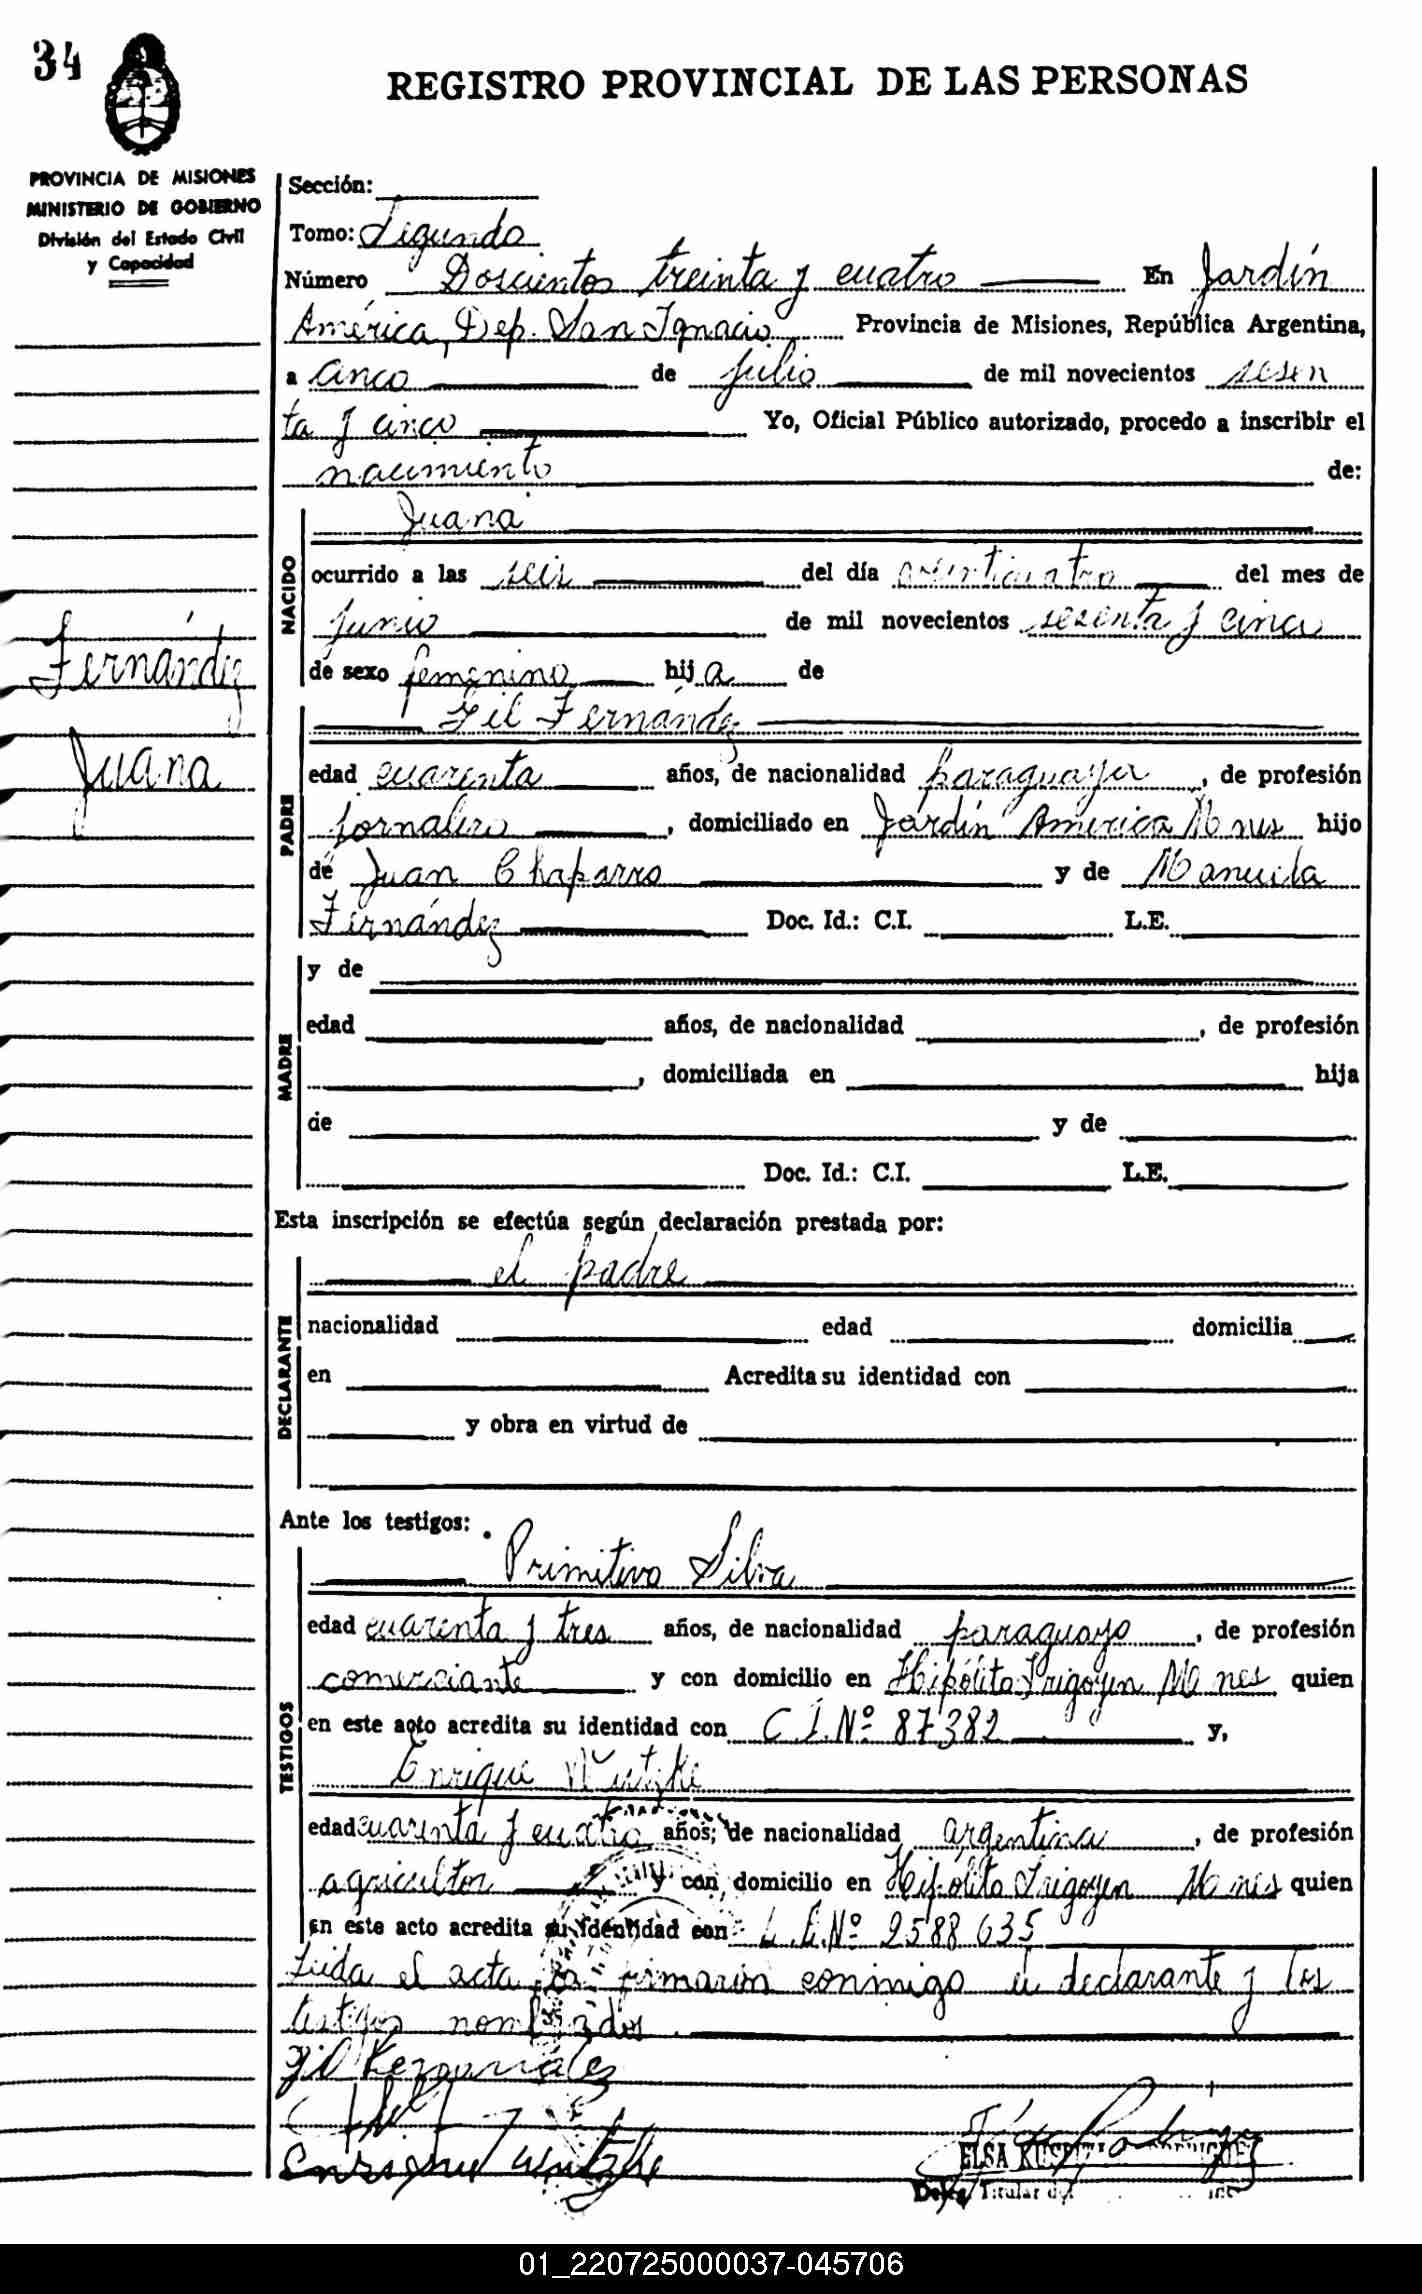 34
REGISTRO PROVINCIAL DE LAS PERSONAS
PROVINCIA DE MISIONES
MINISTERIO DE GOBIERNO
División del Estado Civil
y Capacidad
Sección:
Tomo: Segundo
Número Doscientos treinta y cuatro En Jardín
América, Dep. San Ignacio Provincia de Misiones, República Argentina,
a cinco de julio de mil novecientos sesen
ta y cinco Yo, Oficial Público autorizado, procedo a inscribir el
nacimiento de:
Juana
NACIDO
ocurrido a las seis del día veinticuatro del mes de
junio de mil novecientos sesenta y cinco
de sexo femenino hija de
Fernández
Juana
Gil Fernández
PADRE
edad cuarenta años, de nacionalidad paraguaya, de profesión
jornalero, domiciliado en Jardín América Mnes hijo
de Juan Chaparro y de Manuela
Fernández Doc. Id.: C.I. L.E.
y de
MADRE
edad años, de nacionalidad , de profesión
, domiciliada en hija
de y de
Doc. Id.: C.I. L.E.
Esta inscripción se efectúa según declaración prestada por:
el padre
DECLARANTE
nacionalidad edad domicilia
en Acredita su identidad con
y obra en virtud de
Ante los testigos:
Primitivo Silva
TESTIGOS
edad cuarenta y tres años, de nacionalidad paraguayo, de profesión
comerciante y con domicilio en Hipólito Irigoyen Mnes quien
en este acto acredita su identidad con C.I. Nº 87382 y,
Enrique
edad cuarenta y cuatro años, de nacionalidad argentina, de profesión
agricultor y con domicilio en Hipólito Irigoyen Mnes quien
en este acto acredita su identidad con L.E. Nº 2588635
Leida el acta la firmaron conmigo el declarante y los
testigos nombrados.
Enrique
ELSA
Titular del
01_220725000037-045706